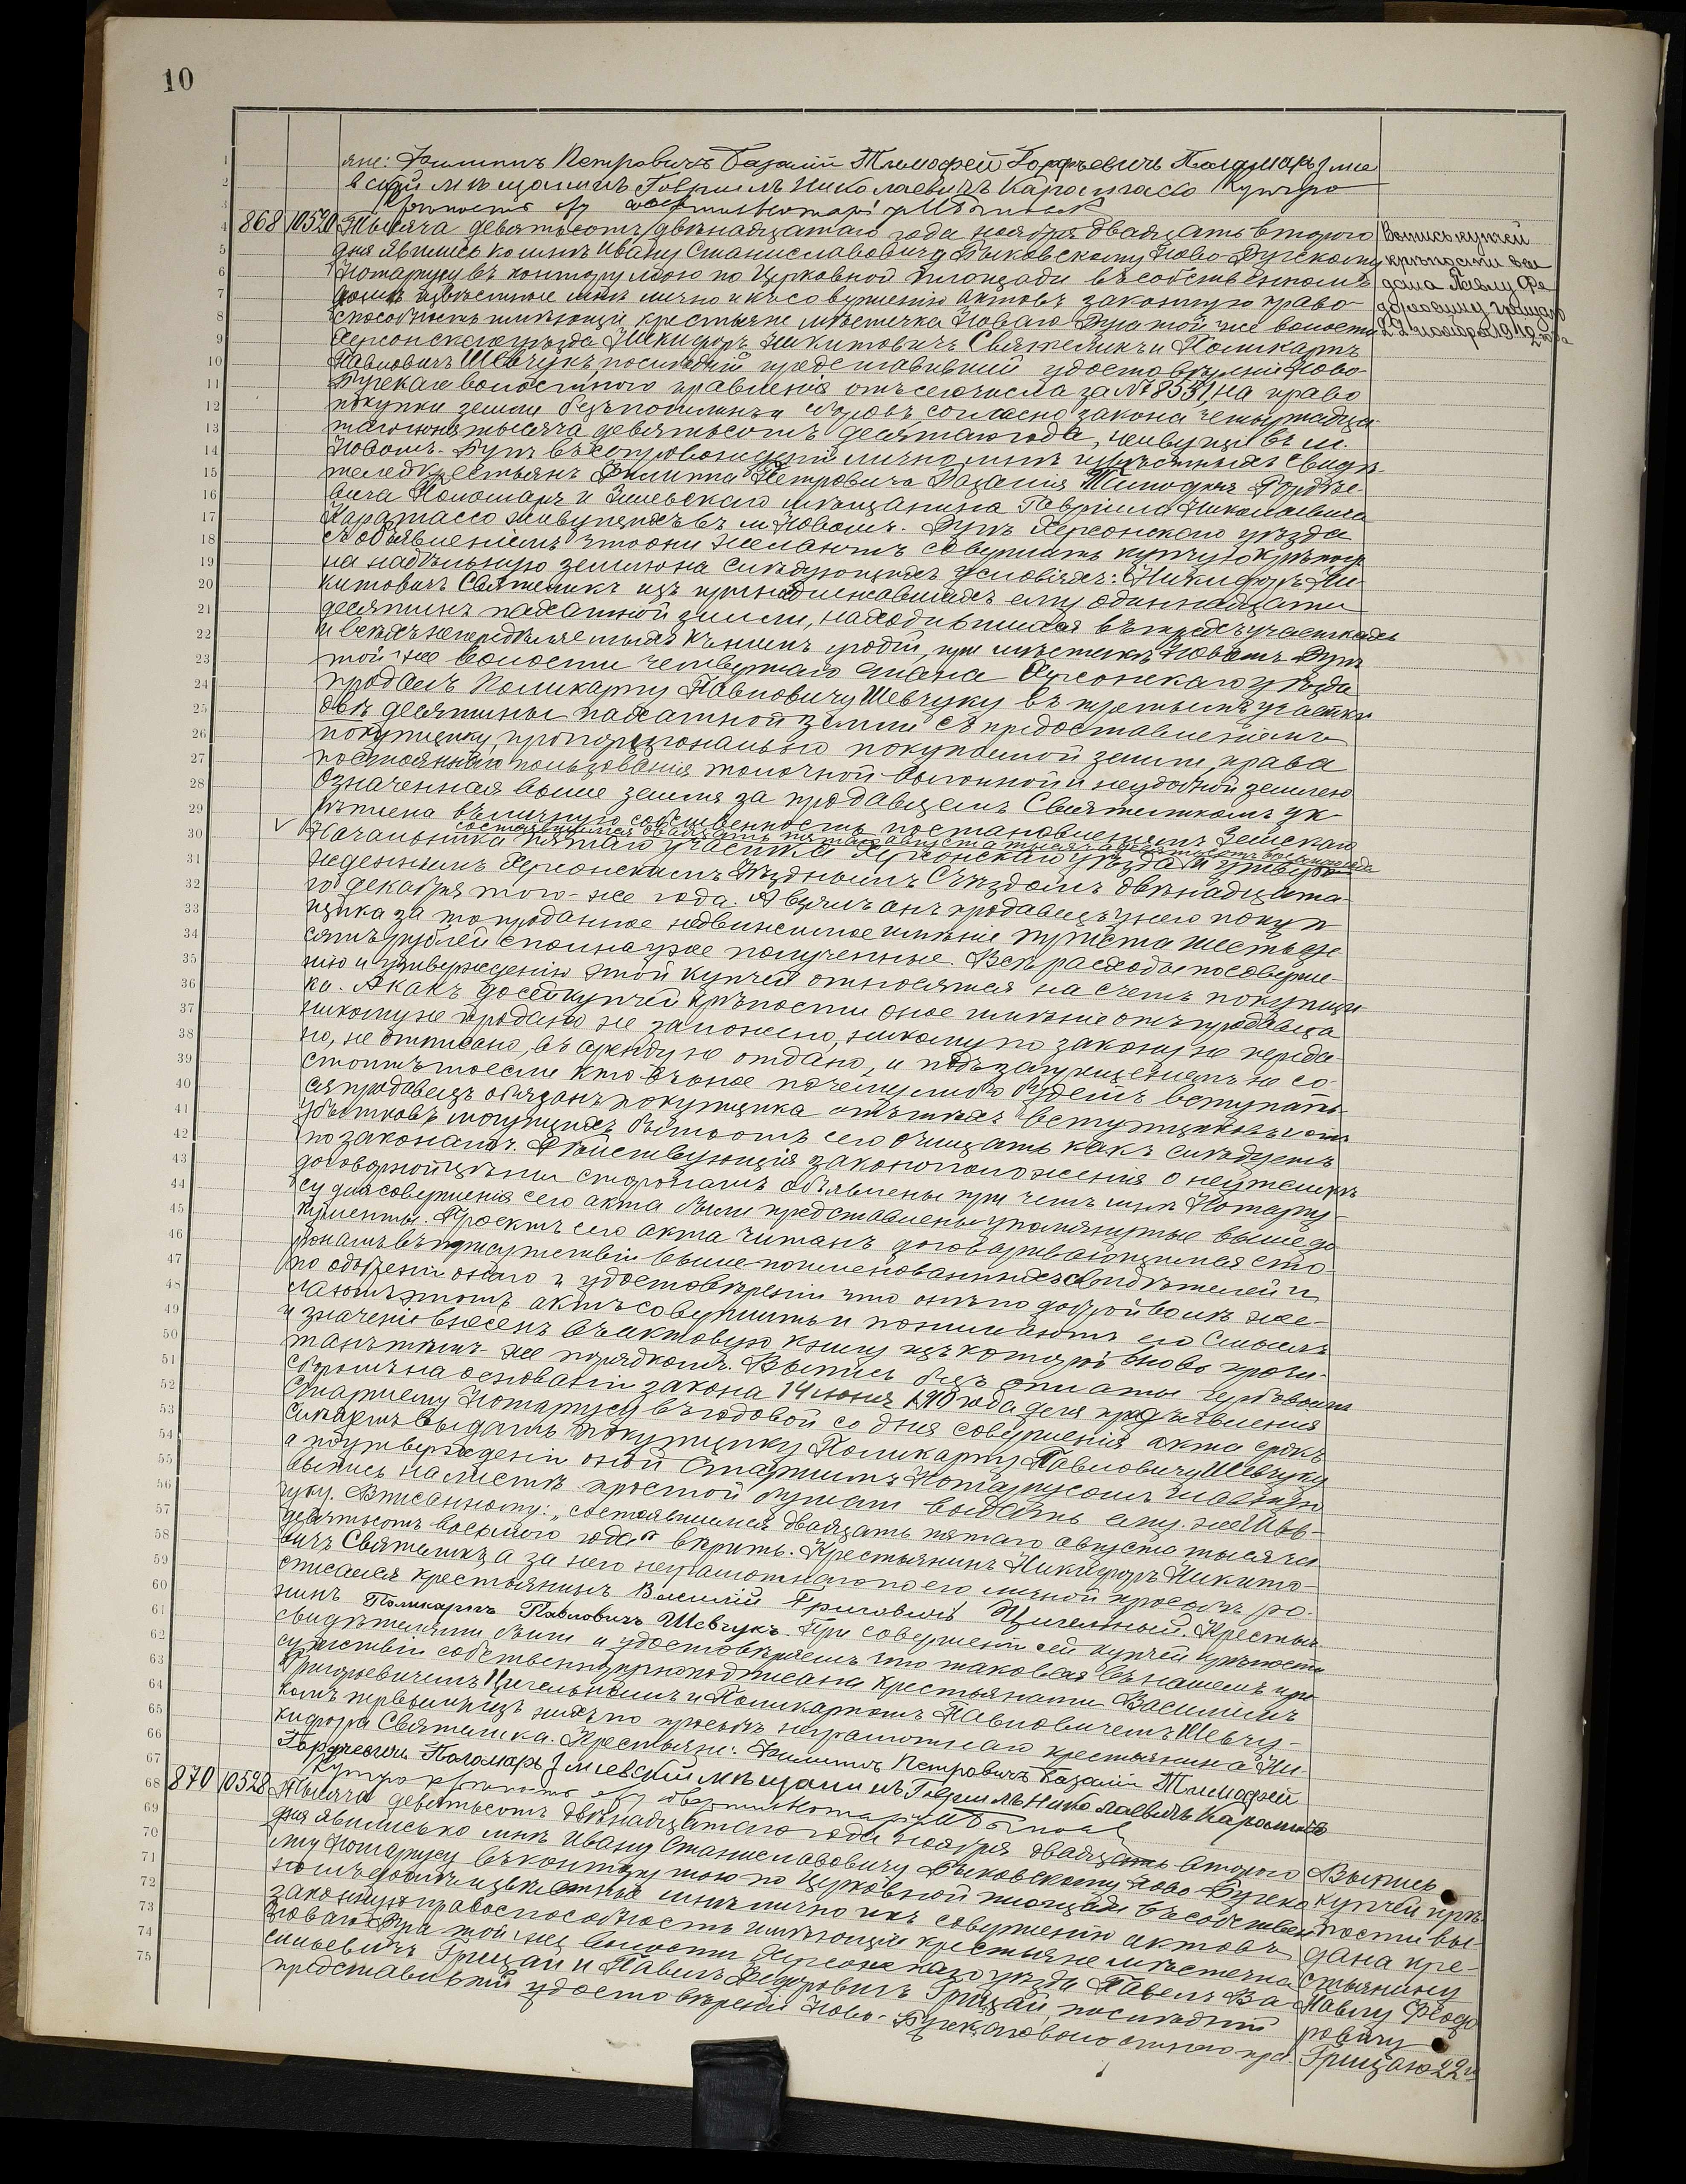 10
яне: Филиппъ Петровичъ Базалій Тимофей Гордѣевичъ Паламарь Змие
вскій мѣщанинъ Гавріилъ Николаевичъ Карамтассо Купчую
крѣпость
868 10520 Тысяча девятьсотъ двѣнадцатаго года ноября двадцать второго
дня явились ко мнѣ Ивану Станиславовичу Быковскому Ново-Бугскому
Нотаріусу въ контору мою по Церковной площади въ собственномъ
домѣ извѣстные мнѣ лично и къ совершенію актовъ законную право-
способность имѣющіе крестьяне мѣстечка Новаго Буга той же волости
Херсонскаго уѣзда Никифоръ Никитовичъ Святеликъ и Поликарпъ
Павловичъ Шевчукъ послѣдній представившій удостовѣреніе Ново-
Бугскаго волостного правленія отъ сего числа за № 8531, на право
покупки земли безъ пошлинъ и сборовъ согласно закона четырнадца-
таго іюня тысяча девятьсотъ десятаго года, живущіе въ м.
Новомъ-Бугѣ въ сопровожденіи лично мнѣ извѣстныхъ свидѣ-
телей крестьянъ Филиппа Петровича Базалія Тимофея Гордѣе-
вича Паломарь и Зміевскаго мѣщанина Гавріила Николаевича
Карамтассо живущихъ въ м. Новомъ-Бугѣ Херсонскаго уѣзда
съ объявленіемъ что они желаютъ совершить купчую крѣпость
на надѣльную землю на слѣдующихъ условіяхъ: Никифоръ Ни-
китовичъ Святеликъ изъ принадлежавшихъ ему одиннадцати
десятинъ пахатной земли, находившихся въ трехъ участкахъ
и всѣхъ непредѣляемыхъ къ нимъ угодій, при мѣстечкѣ Новомъ Бугѣ
той же волости четвертаго стана Херсонскаго уѣзда
продалъ Поликарпу Павловичу Шевчуку въ третьемъ участкѣ
двѣ десятины пахатной земли съ предоставленіемъ
покупщику, пропорціонально покупаемой земли, права
постояннаго пользованія толочной выгонной и неудобной землею
Означенная выше земля за продавцемъ Святеликомъ ук-
рѣплена въ личную собственность постановленіемъ Земскаго
состоявшимся двадцать пятаго августа тысяча девятьсотъ восьмого года
Начальника пятаго участка Херсонскаго уѣзда и утверж-
деннымъ Херсонскимъ Уѣзднымъ Съѣздомъ двѣнадцата-
го декабря того-же года. А взялъ онъ продавецъ у него покуп-
щика за то проданное недвижимое имѣніе триста шестьде-
сятъ рублей сполна уже полученные. Всѣ расходы по соверше-
нію и утвержденію этой купчей относятся на счетъ покупщи-
ка. А какъ до сей купчей крѣпости оное имѣніе отъ продавца
никому не продано не заложено, никому по закону не переда-
но, не отписано, въ аренду не отдано, и подъ запрещеніемъ не со-
стоитъ то если кто въ оное почему либо будетъ вступать-
ся продавецъ обязанъ покупщика отъ тѣхъ вступщиковъ и отъ
убытковъ могущихъ быть отъ сего очищать какъ слѣдуетъ
по законамъ. Дѣйствующія законоположенія о неутайкѣ
договорной цѣны сторонамъ объявлены при чемъ мнѣ Нотаріу-
су для совершенія сего акта были представлены упомянутые выше до-
кументы. Проектъ сего акта читанъ договаривающимся сто-
ронамъ въ присутствіи выше поименованныхъ свидѣтелей и
по одобреніи онаго и удостовѣреніи что они по доброй волѣ же-
лаютъ этотъ актъ совершить и понимаютъ его смыслъ
и значеніе внесенъ въ актовую книгу изъ которой вновь прочи-
танъ тѣмъ-же порядкомъ. Выпись безъ оплаты гербовымъ
сборомъ на основаніи закона 14 іюня 1910 года для предъявленія
Старшему Нотаріусу въ годовой со дня совершенія акта срокъ
слѣдуетъ выдать покупщику Поликарпу Павловичу Шевчуку
а по утвержденіи оной Старшимъ Нотаріусомъ главную
выпись на листѣ простой бумаги выдать ему же Шев-
чуку. Вписанному: „состоявшимся двадцать пятаго августа тысяча
девятьсотъ восьмого года" вѣрить. Крестьянинъ Никифоръ Никито-
вичъ Святеликъ а за него неграмотнаго по его личной просьбѣ ро-
списался крестьянинъ Василій Григорьевъ Цигельный. Крестья-
нинъ Поликарпъ Павловичъ Шевчукъ. При совершеніи сей купчей крѣпости
свидѣтелями были и удостовѣряемъ что таковая въ нашемъ при-
сутствіи собственноручно подписана крестьянами Василіемъ
Григорьевичемъ Цигельнымъ и Поликарпомъ Павловичемъ Шевчу-
комъ первымъ изъ нихъ по просьбѣ неграмотнаго крестьянина Ни-
кифора Святелика. Крестьяне: Филиппъ Петровичъ Базалій Тимофей
Гордѣевичъ Паламарь Зміевскій мѣщанинъ Гавріилъ Николаевичъ Карамтассо
Купчую крѣпость
870 10528 Тысяча девятьсотъ двѣнадцатаго года ноября двадцать второго
дня явились ко мнѣ Ивану Станиславовичу Быковскому Ново-Бугско-
му Нотаріусу въ контору мою по Церковной площади въ собствен-
номъ домѣ извѣстные мнѣ лично и къ совершенію актовъ
законную правоспособность имѣющіе крестьяне мѣстечка
Новаго Буга той же волости Херсонскаго уѣзда Павелъ Ва-
сильевичъ Грицай и Павелъ Федоровичъ Грицай, послѣдній
представившій удостовѣреніе Ново-Бугскаго волостного пра-
Выпись купчей
крѣпости вы
дана Павлу Фе
доровичу Грицаю
22 ноября 1912 года
Выпись
купчей крѣ-
пости вы-
дана кре-
стьянину
Павлу Федо
ровичу
Грицаю 22го